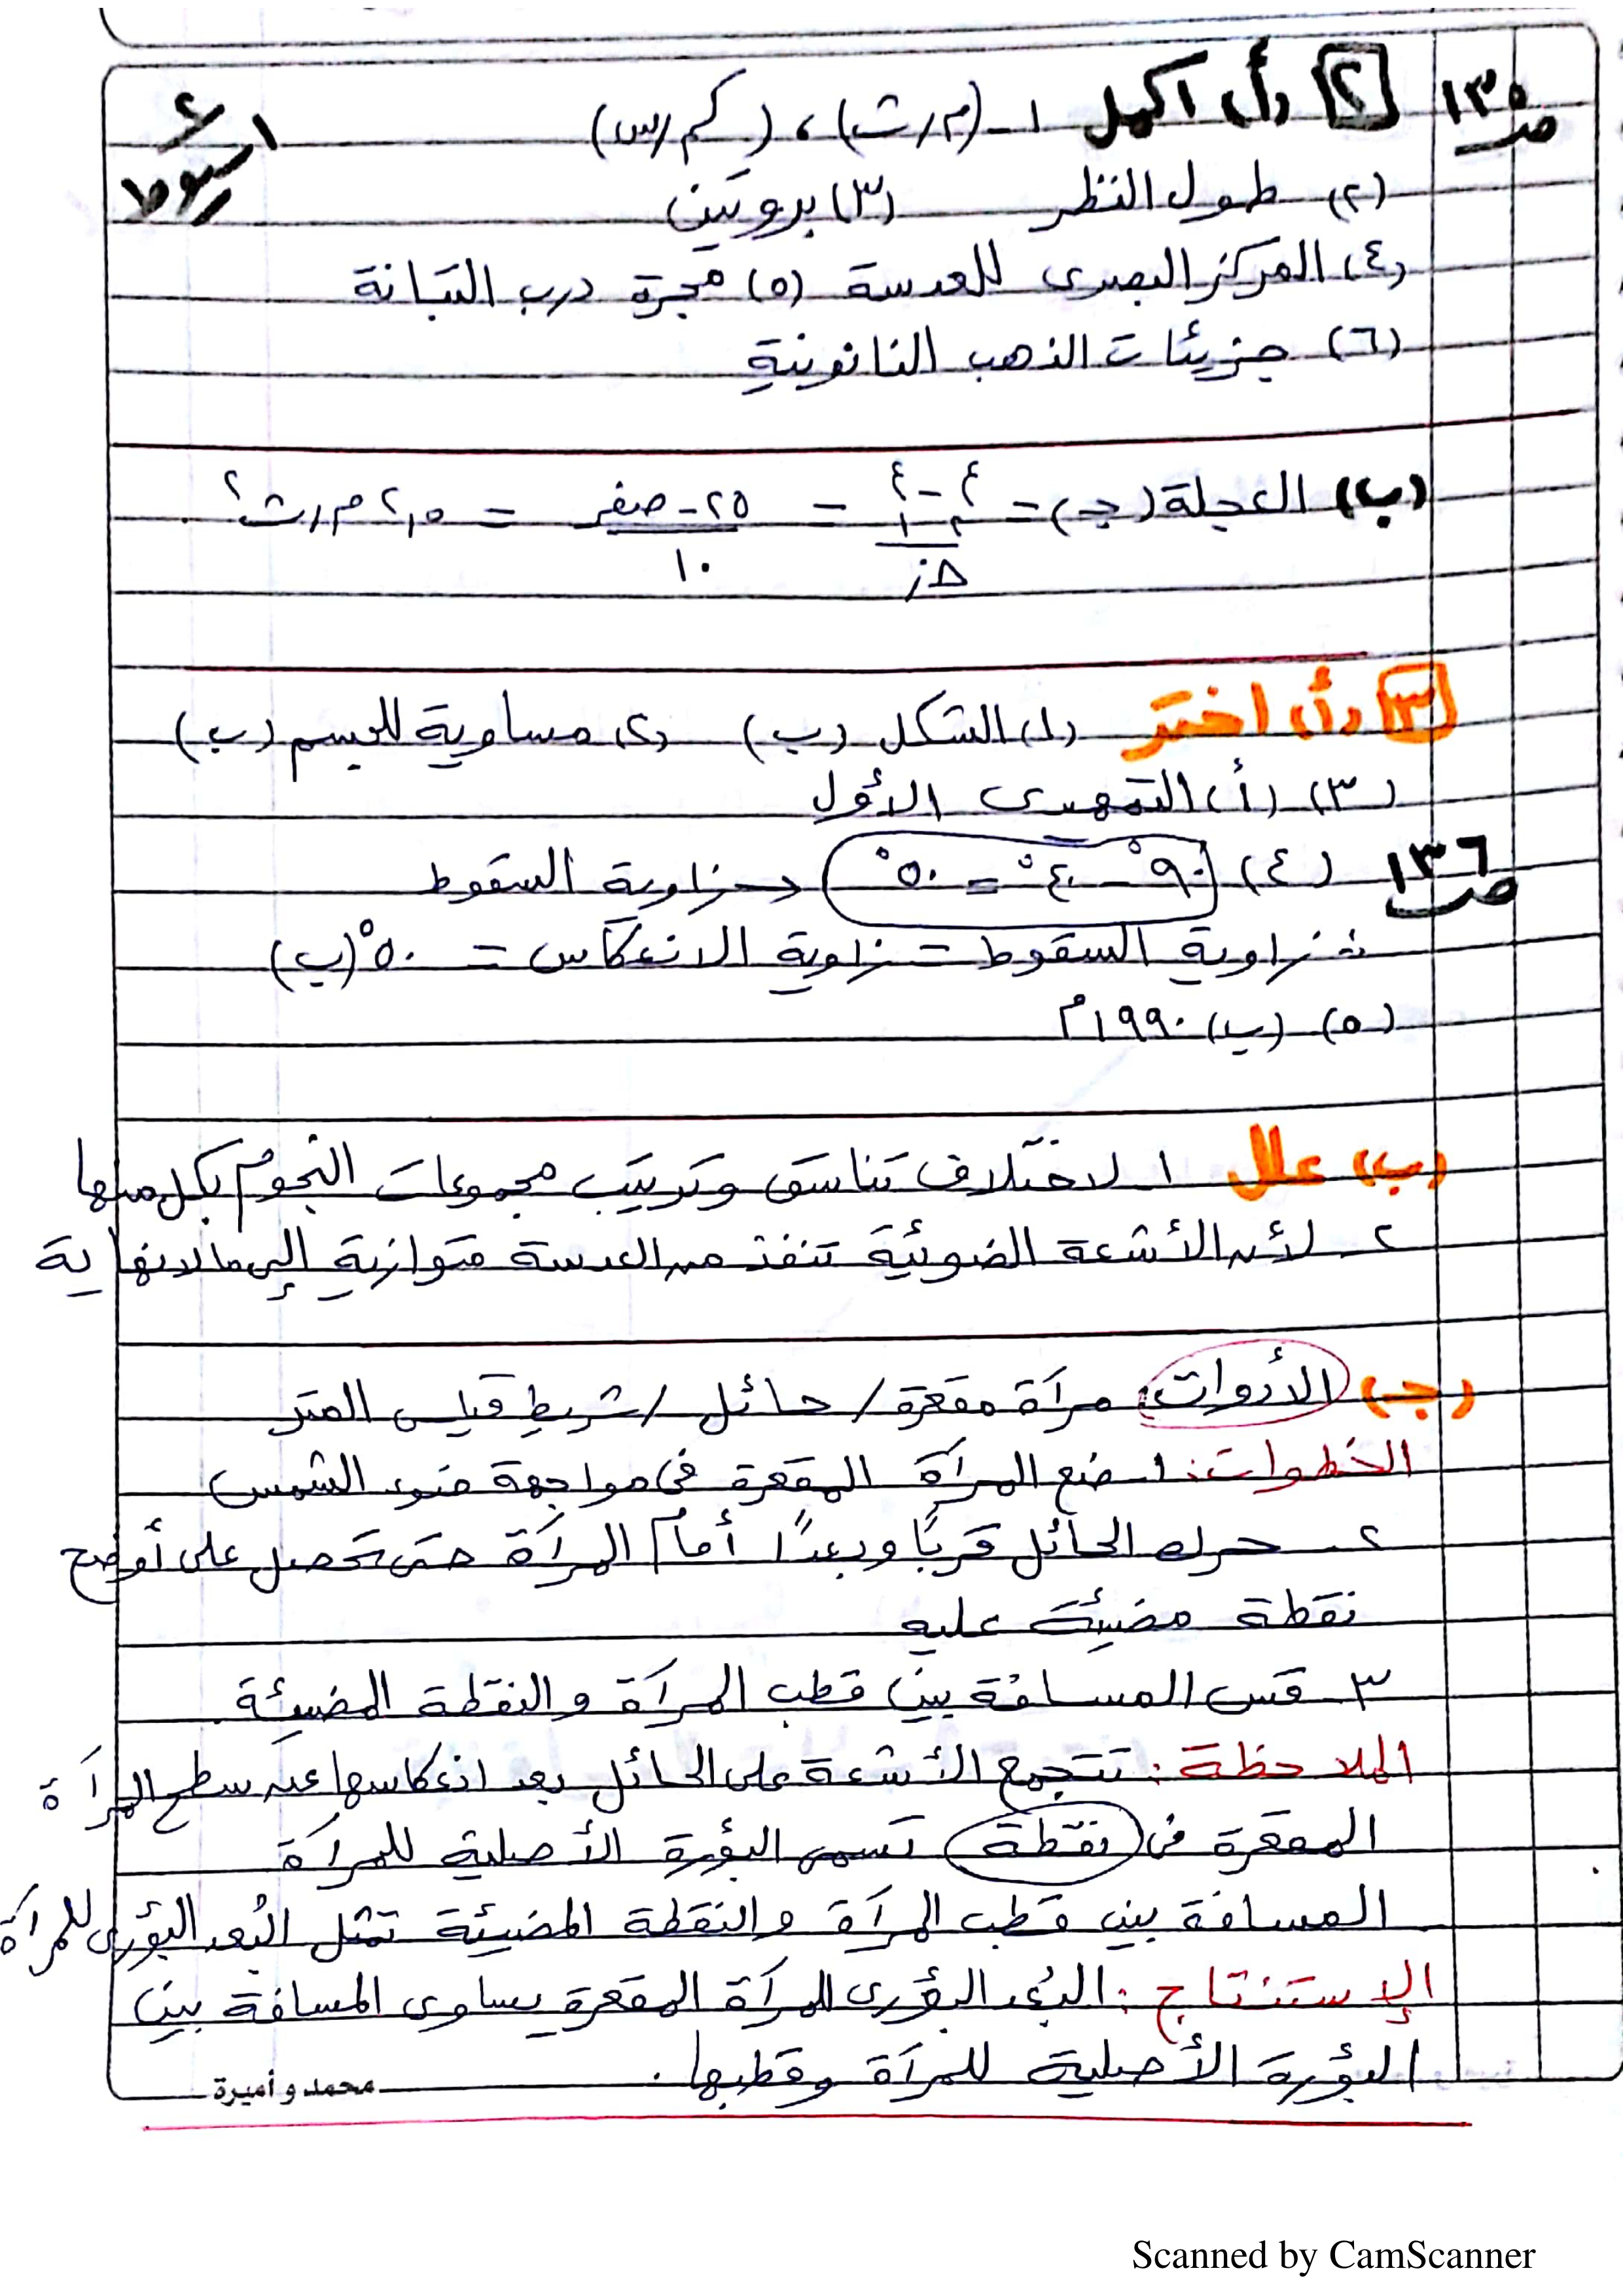 ص١٣٥ [٢] (أ) اكمل ١- (م/ث) ، (كم/س)
(٢) طول النظر (٣) بروتين
(٤) المركز البصرى للعدسة (٥) مجرة درب التبانة
(٦) جزيئات الذهب النانوينية
(ب) العجلة (جـ) = ع٢ - ع١ / Δز = ٢٥ - صفر / ١٠ = ٢,٥ م/ث٢
[٣] (أ) اختر (١) الشكل (ب) (٢) مساوية للجسم (ب)
(٣) (أ) التمهيدى الأول
ص١٣٦ (٤) ٩٠° - ٤٠° = ٥٠° زاوية السقوط
زاوية السقوط = زاوية الانعكاس = ٥٠° (ب)
(٥) (ب) ١٩٩٠م
(ب) علل ١ لاختلاف تناسق وترتيب مجموعات النجوم بكل منها
٢- لأن الأشعة الضوئية تنفذ من العدسة متوازية إلى مالانهاية
(جـ) الأدوات: مرآة مقعرة / حائل / شريط قياس المتر
الخطوات: ١- ضع المرآة المقعرة فى مواجهة ضوء الشمس
٢- حرك الحائل قربًا وبعدًا أمام المرآة حتى تحصل على أوضح
نقطة مضيئة عليه
٣- قس المسافة بين قطب المرآة والنقطة المضيئة
الملاحظة: تتجمع الأشعة على الحائل بعد انعكاسها عن سطح المرآة
المقعرة فى نقطة تسمى البؤرة الأصلية للمرآة
المسافة بين قطب المرآة والنقطة المضيئة تمثل البُعد البؤرى للمرآة
الإستنتاج: البُعد البؤرى للمرآة المقعرة يساوى المسافة بين
البؤرة الأصلية للمرآة وقطبها.
محمد و أميرة
Scanned by CamScanner